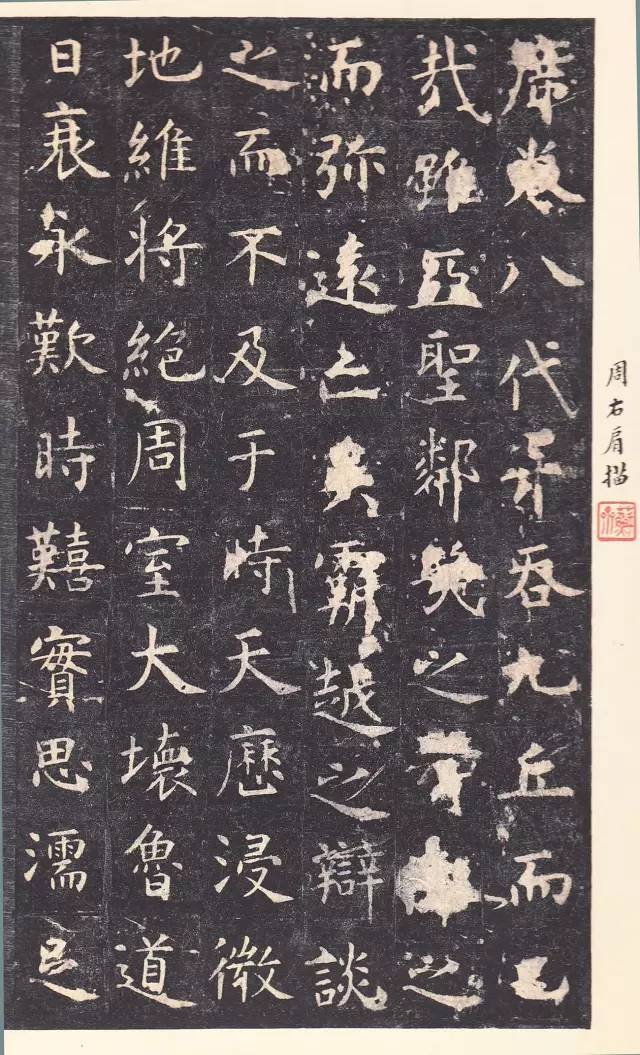 周右肩描
席卷八代并吞九丘而已
哉雖亞聖鄰幾之之
而弥遠亡吳霸越之辯談
之而不及于時天歷浸微
地維將絶周室大壞魯道
日衰永歎時囏實思濡足